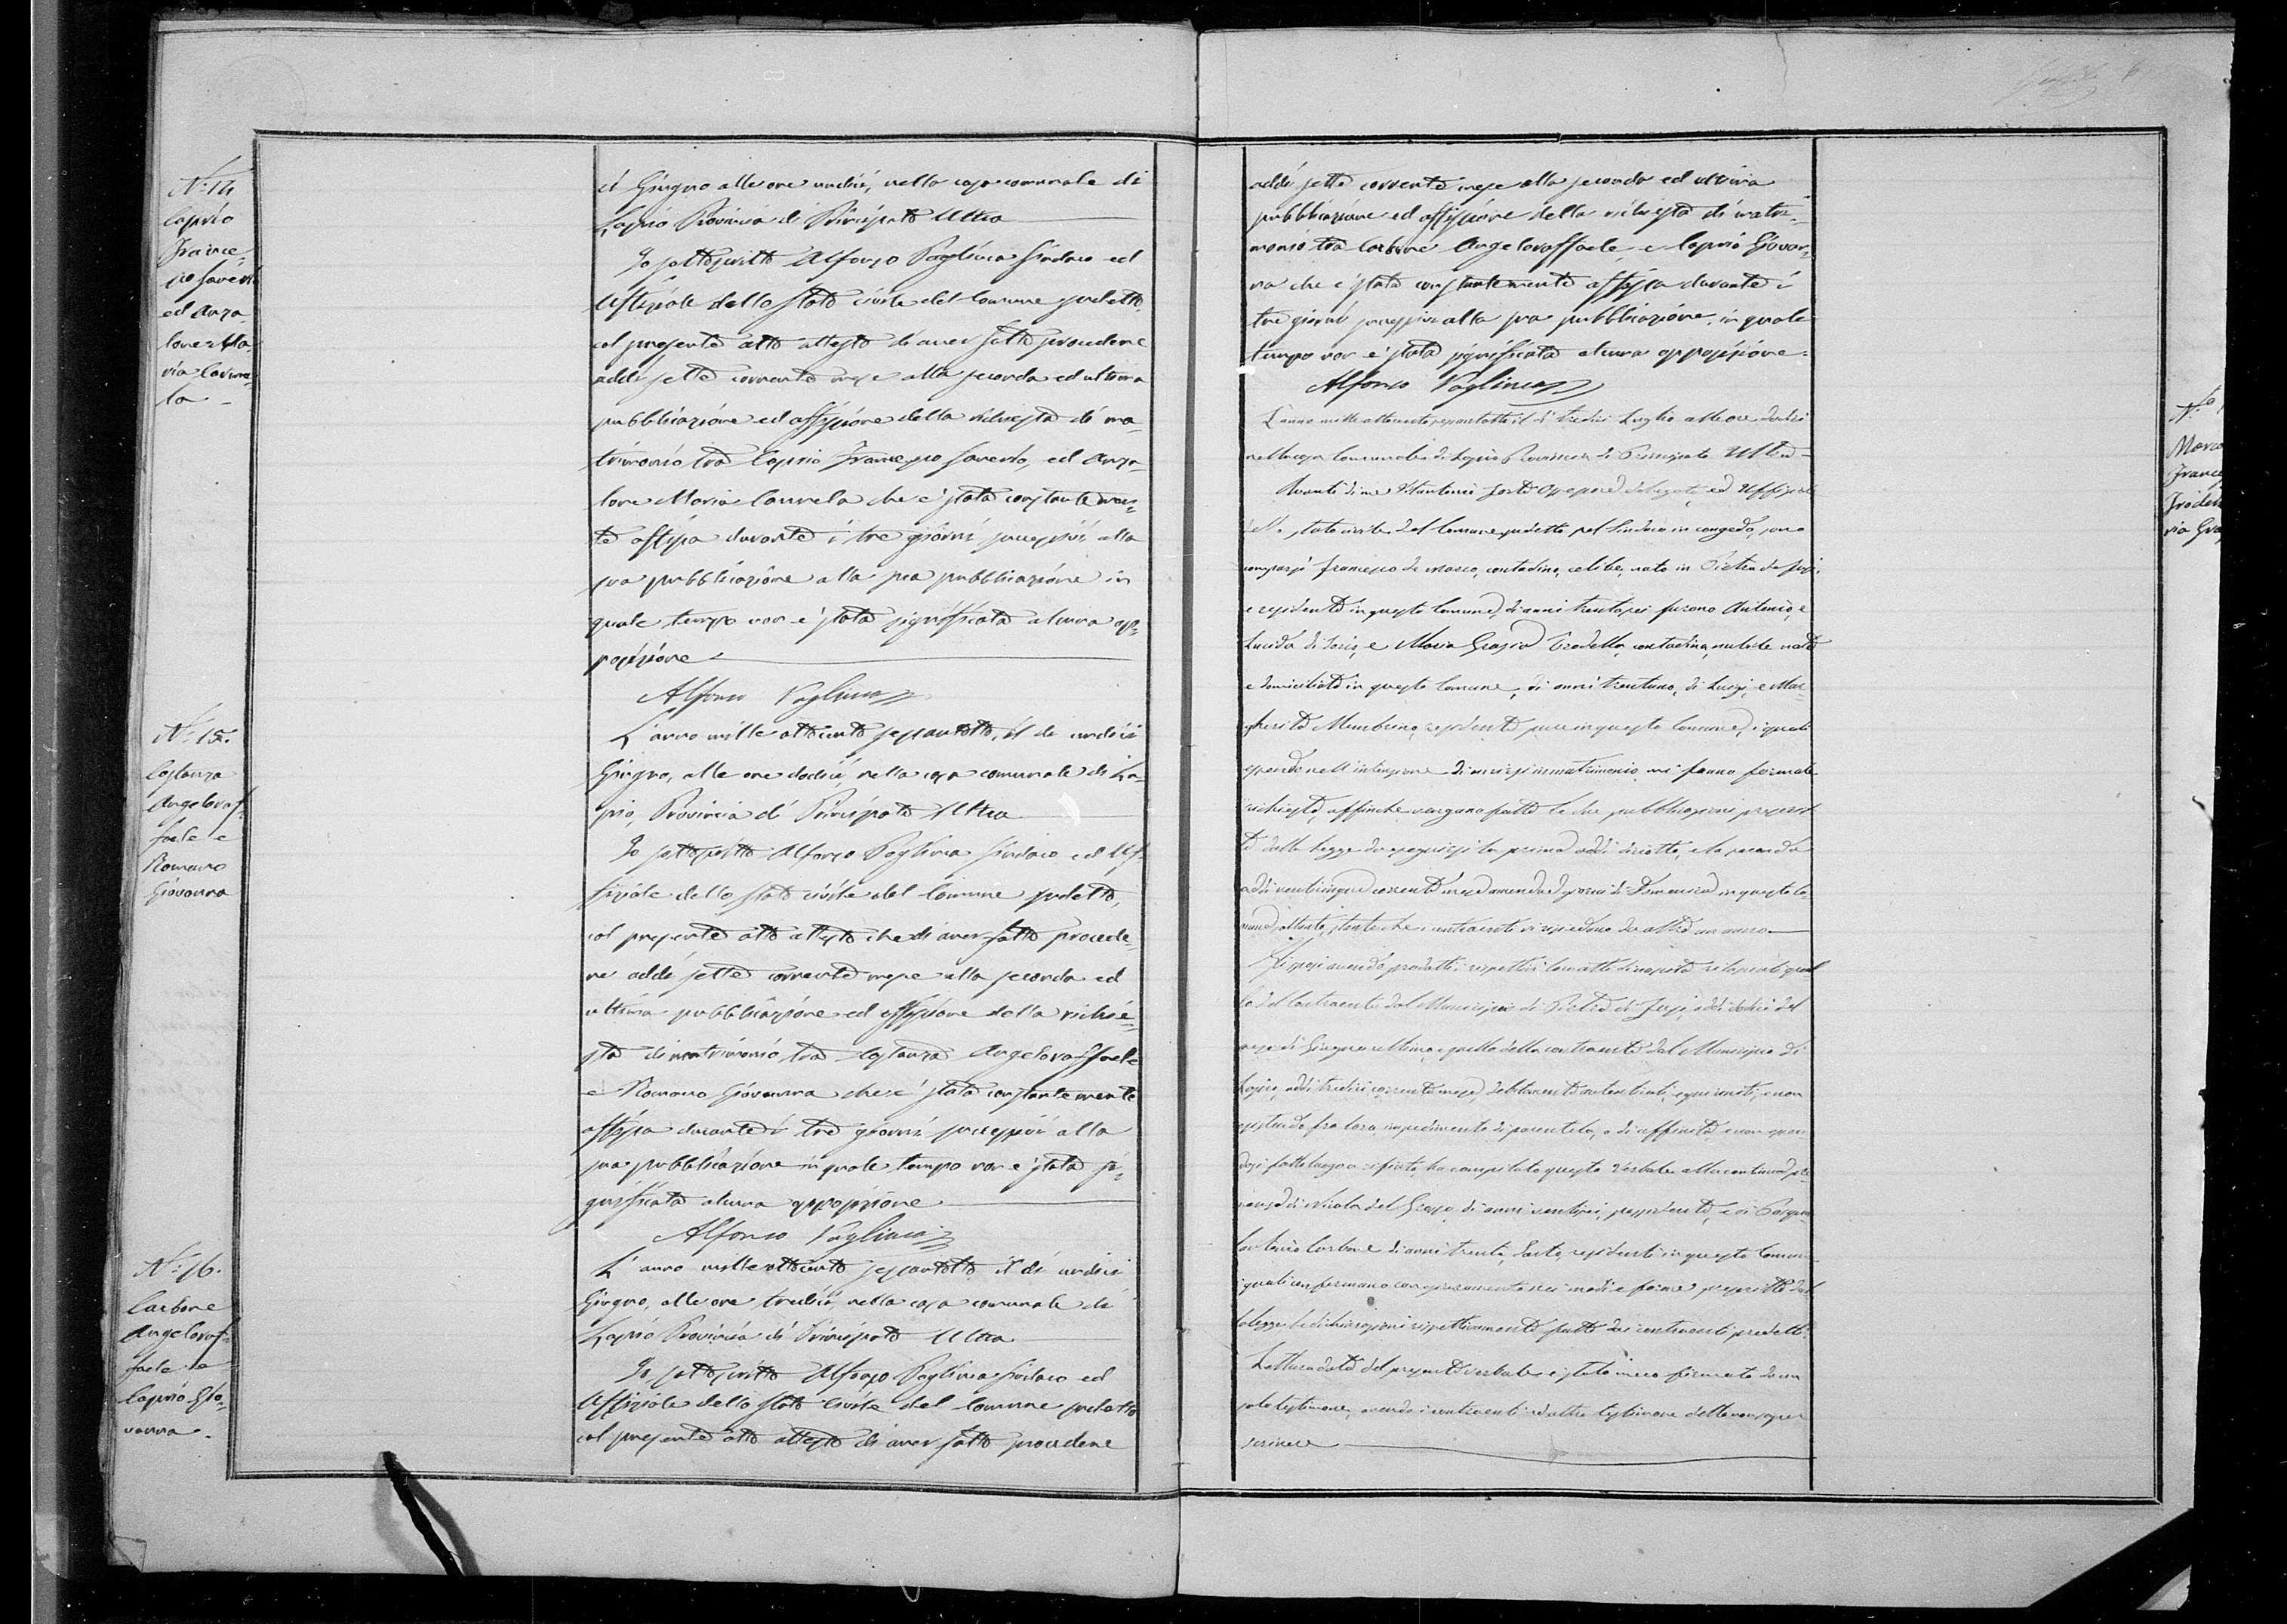 N.º 14
Caprio
France
sco Saverio
ed Anza
lone Ma
ria Carme
la
di Giugno alle ore undici, nella casa comunale di
Lapio Provincia di Principato Ultra
Io sottoscritto Alfonzo Paglinca Sindaco ed
Uffiziale dello stato civile del Comune sudetto
col presente atto attesto di aver fatto procedere
addi sette corrente mese alla seconda ed ultima
pubblicazione ed affissione della richiesta di ma-
trimonio tra Caprio Francesco Saverio, ed Anza-
lone Maria Carmela che è stata constantemen-
te affissa durante i tre giorni successivi alla
sua pubblicazione alla sua pubblicazione in
quale tempo non è stata significata alcuna op-
posizione
Alfonso
N.º 15.
Costanza
Angeloraf-
faele e
Romano
Giovanna
L'anno mille ottocento sessantotto, il dì undici
Giugno, alle ore dodici, nella casa comunale di La-
pio, Provincia di Principato Ultra
Io sottoscritto Alfonzo Paglinca Sindaco ed Uf-
fiziale dello stato civile del Comune sudetto,
col presente atto attesto che di aver fatto procede-
re addi sette corrente mese alla seconda ed
ultima pubblicazione ed affissione della richie-
sta di matrimonio tra Costanza Angeloraffaele
e Romano Giovanna che è stata constantemente
affissa durante i tre giorni successivi alla
sua pubblicazione in quale tempo non è stata si-
gnificata alcuna opposizione
Alfonso
N.º 16.
Carbone
Angeloraf-
faele e
Caprio Gio-
vanna.
L'anno mille ottocento sessantotto il dì undici
Giugno, alle ore tredici, nella casa comunale di
Lapio Provincia di Principato Ultra
Io sottoscritto Alfonzo Paglinca Sindaco ed
Uffiziale dello stato civile del Comune sudetto
col presente atto attesto di aver fatto procedere
6
addi sette corrente mese alla seconda ed ultima
pubblicazione ed affissione della richiesta di matri-
monio tra Carbone Angeloraffaele, e Caprio Giovan-
na che è stata constantemente affissa durante i
tre giorni successivi alla sua pubblicazione, in quale
tempo non è stata significata alcuna opposizione.
Alfonso
L'anno mille ottocento sessantotto il dì tredici Luglio alle ore dodici
nella casa Comunale di Lapio Provincia di Principato Ultra
Avanti di me delegato, ed Uffiziale
dello stato civile del Comune sudetto pel Sindaco in congedo, sono
comparsi Francesco de Marco, contadino, celibe, nato in Pietra de fusi,
e residente in questo Comune, di anni trentasei furono Antonio, e
Lucida di Iorio, e Maria Grazia Frodella, contadina, nubile nata
e domiciliata in questo Comune, di anni trentuno, di Luigi, e Mar-
gherita residente pure in questo Comune, i quali
essendo nell'intenzione di unirsi in matrimonio, mi fanno formale
richiesta, affinche vengano fatte le due pubblicazioni prescrit-
te dalla legge da eseguirsi la prima addi diciotto, e la seconda
addi venticinque corrente mese amendue giorni di Domenica in questo Co-
mune, che i contraenti vi risiedono da oltre un anno
avendo prodotti i rispettivi loro atti di nascita rilasciati quel-
lo del contraente dal Municipio di Pietra de Fusi, addi dodici del
mese di Giugno ultimo, e quello della contraente dal Municipio di
Lapio, addi tredici corrente mese, debitamente e non
esistendo fra loro impedimento di parentela, o di affinità e non essen-
dosi fatto luogo a rifiuto, ho compilato questo verbale alla continua pre-
senza di Nicola del Grosso di anni ventisei, possidente, e di Pasqua-
lantonio Carbone di anni trenta, sarto, residenti in questo Comune
i quali confermano con giuramento nei modi e forme prescritte dal-
la legge le dichiarazioni rispettivamente fatte dai contraenti predetti.
Lettura data del presente verbale è stato meco firmato da un
solo testimone, avendo i contraenti ed altro testimone detto non saper
scrivere
N.º
Marco
France
Frodel
ria Gra